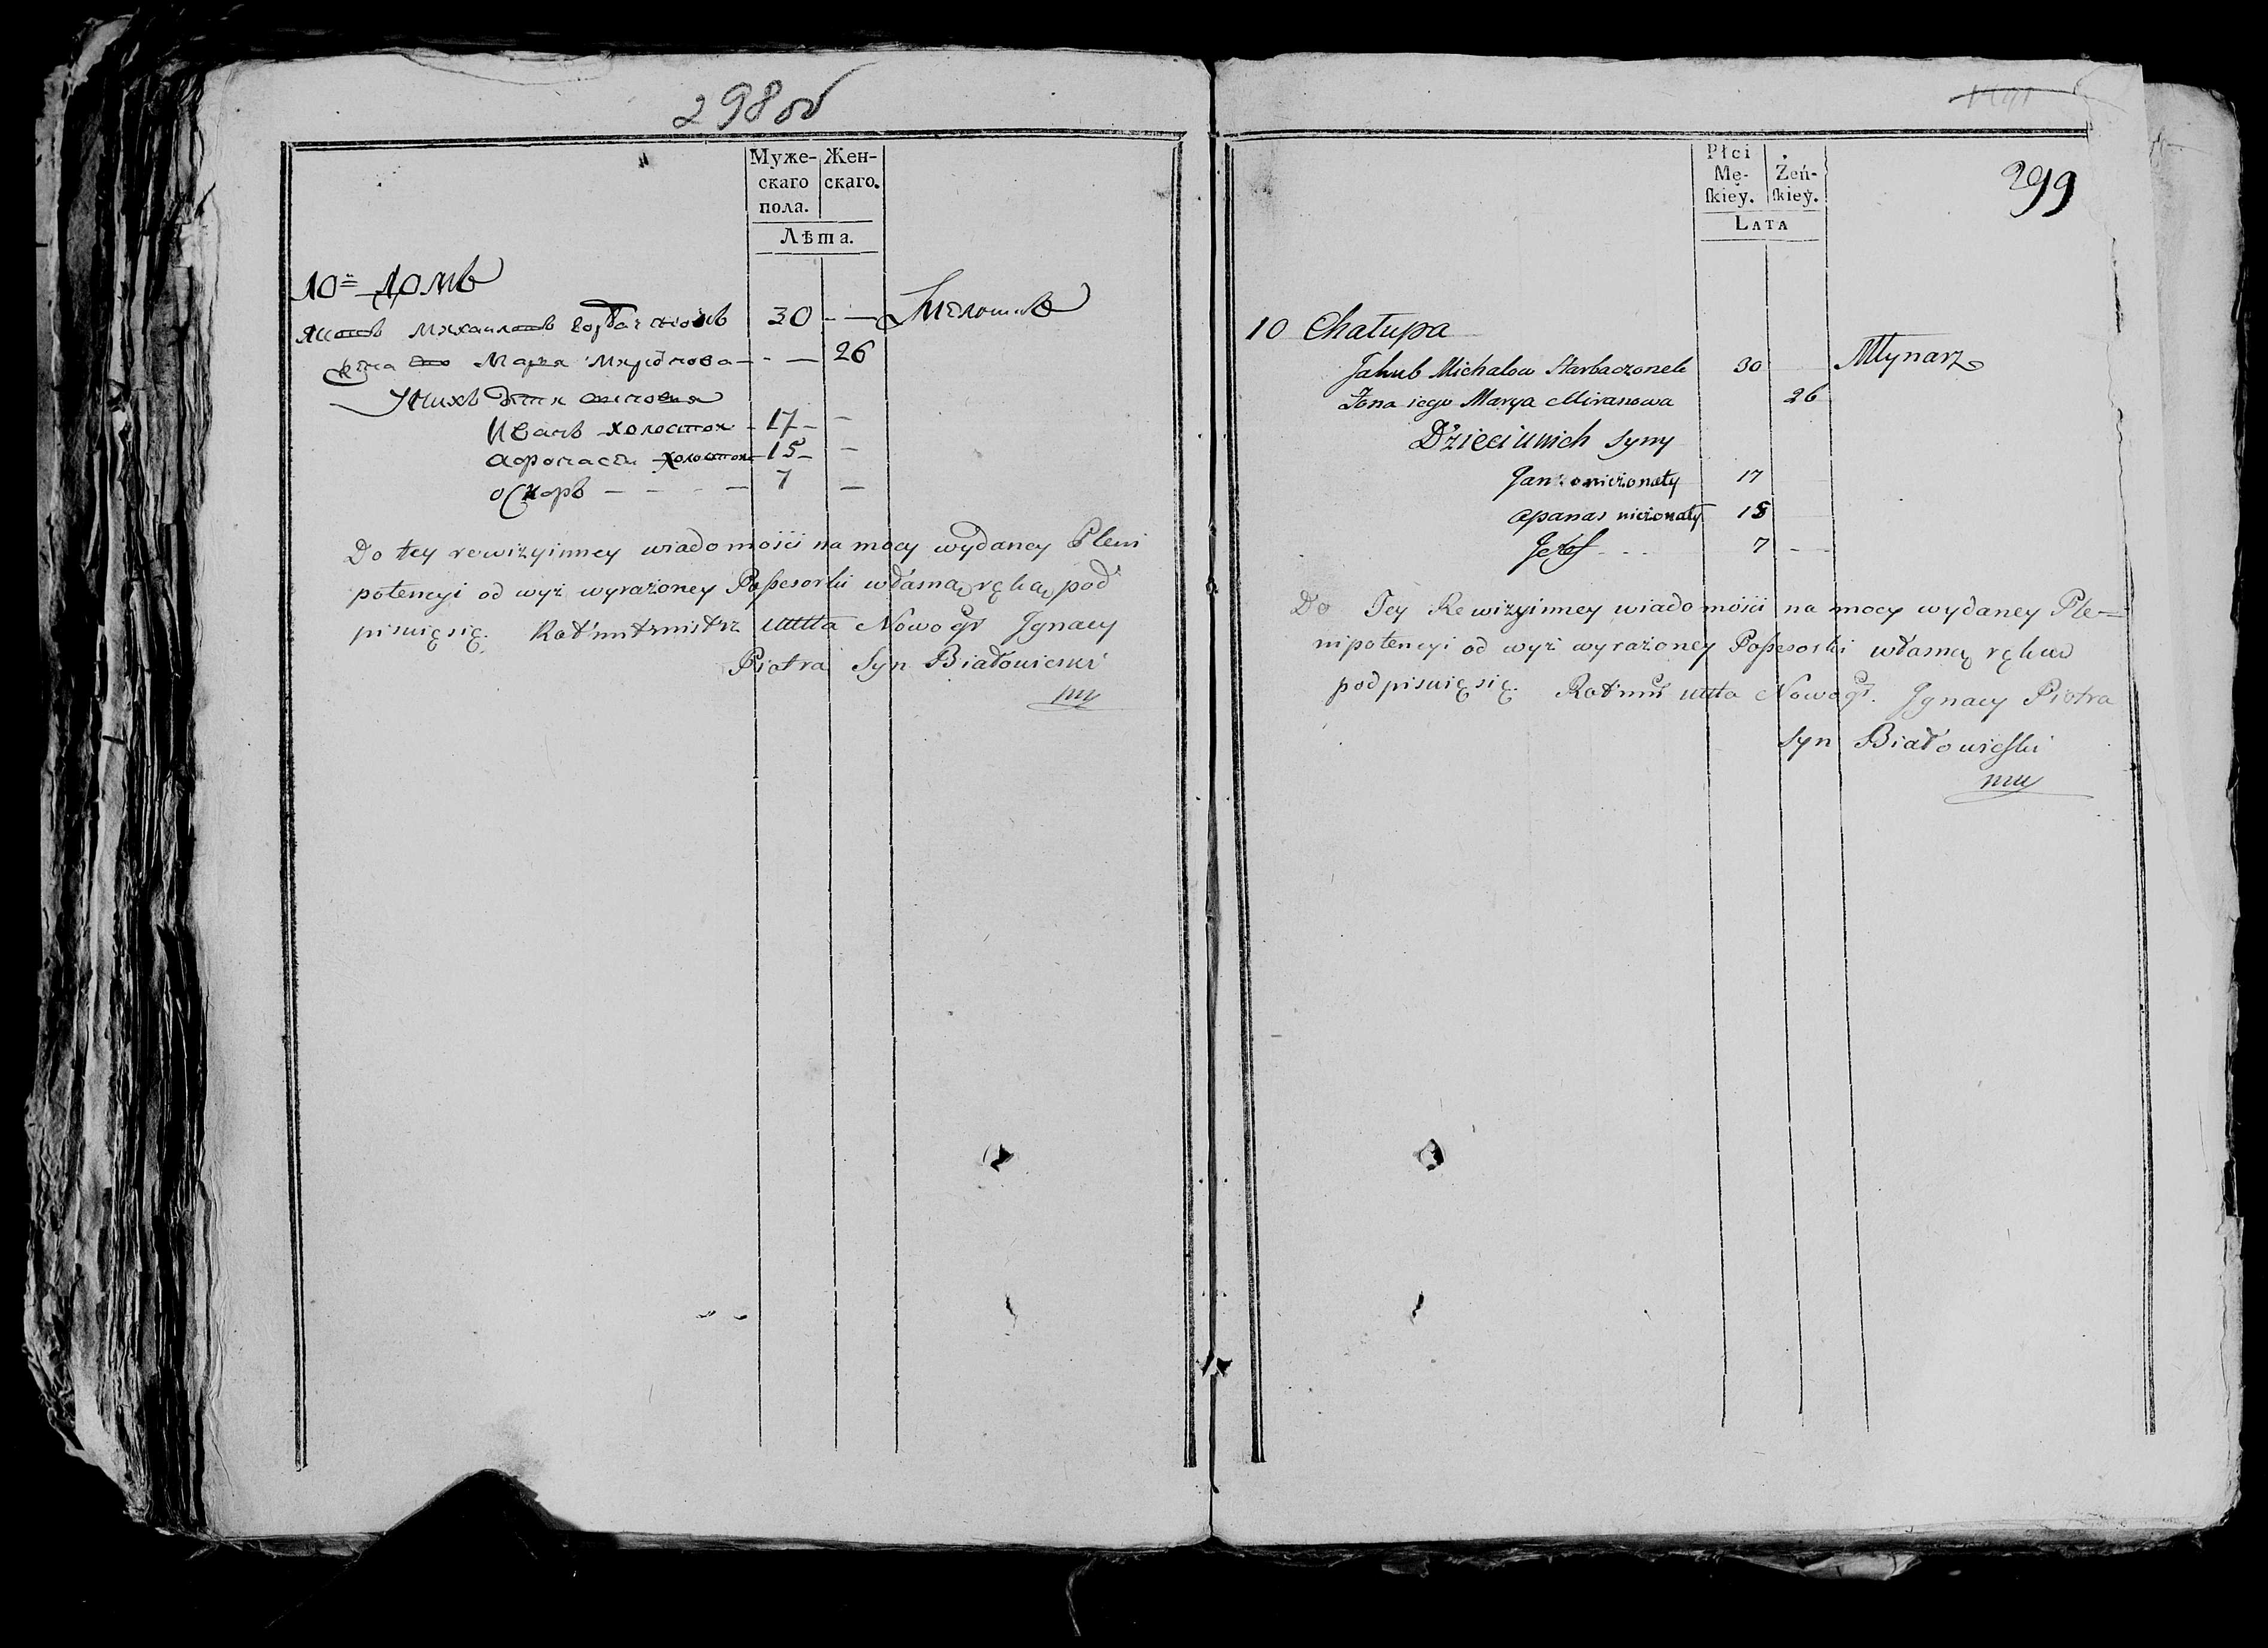 298 об
Муже-
скаго
пола.
Жен-
скаго.
Лѣта.
10й Домъ
Яковъ Михаиловъ 30 - —
жена его Марья Миронова — - — 26
У них дети сыновья
Иванъ холостои - 17 - —
Афонасеи холостои 15 - —
7 —
Do tey rewizyinney wiadomości na mocy wydaney Pleni
potencyi od wyż wyrażoney Possesorki własną ręką pod
pisuię się. Rotmitrzmistrz Nowogr Ignacy
Piotra Syn Białowieski
mp
299
Płci
Mę-
ſkiey.
Żeń-
ſkiey.
Lata
10 Chałupa
Jakub Michałow Harbaczonek 30 Młynarz
Żona iego Marya Miranowa 26
Dzieci u nich syny
Jan nieżonaty 17
Apanas nieżonaty 15
Jozef - - - 7 - -
Do Tey Rewizyinney wiadomości na mocy wydaney Ple-
nipotencyi od wyż wyrażoney Possesorki własną ręką
podpisuię się. Rotmis Nowogr. Ignacy Piotra
syn Białowieſki
mp